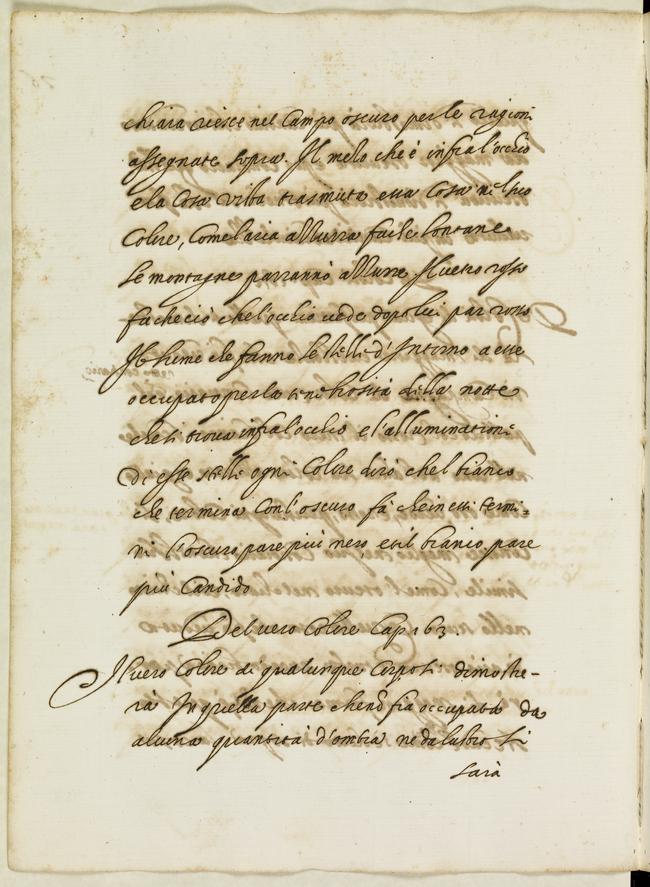 chiara riesce nel Campo oscuro per le ragioni
assegnate sopra. Il mezo che è infra l'occhio
e la Cosa vista trasmuta essa Cosa nel suo
Colore, Come l'aria azzurra fa che le lontane
le montagne parranno azzurre. Il vetro rosso
fa che ciò che l'occhio vede dopo lui par rosso
Il lume che fanno le stelle d'Intorno a esse
occupato per la tenebrosità della notte
che si trova infra l'occhio e l'alluminationi
Di esse stelle ogni Colore dirò che l bianco
che termina Con l'oscuro fa che in essi termi-
ni l'oscuro pare piu nero et il bianco pare
più Candido
Del vero Colore Cap 163.
Il vero Colore di qualunque Corpo si dimostre-
rà In quella parte che nō fia occupata da
alcuna quantità d'ombra ne da lustro si
sarà